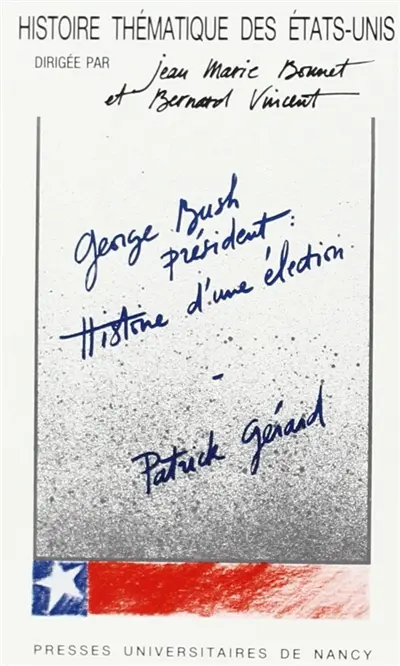 HISTOIRE THÉMATIQUE DES ÉTATS-UNIS
DIRIGÉE PAR Jean Marie Bonnet
et Bernard Vincent
George Bush
président :
Histoire d'une élection
-
Patrick Gérard
PRESSES UNIVERSITAIRES DE NANCY